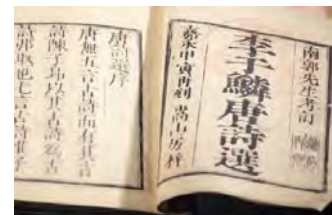 南郭先生考訂
李于鱗唐詩選
嘉永甲寅再刻 嵩山房梓
唐詩選序
唐無五言古詩而有其古
詩陳子昂以其古詩爲古
詩弗取也七言古詩惟子